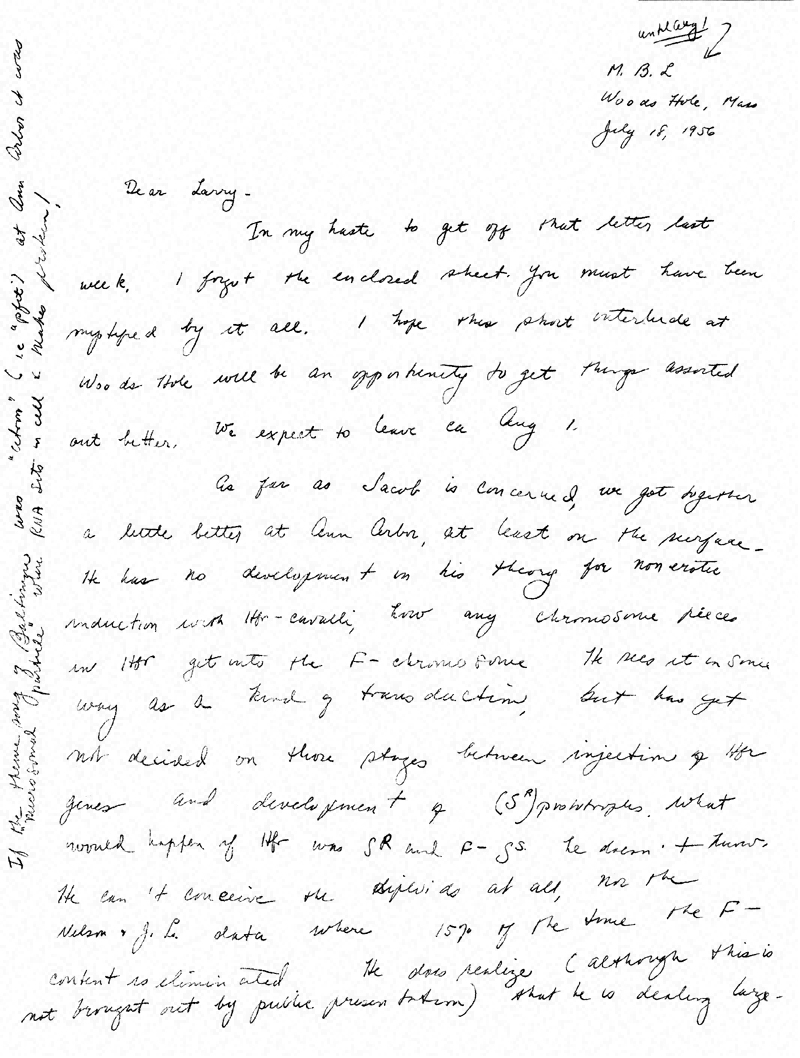 until Aug 1
M. B. L
Woods Hole, Mass
July 18, 1956
Dear Larry -
In my haste to get off that letter last
week, I forgot the enclosed sheet. You must have been
by it all. I hope this short interlude at
Woods Hole will be an opportunity to get things assorted
out better. We expect to leave ca Aug 1.
As far as Jacob is concerned, we got together
a little better at Ann Arbor, at least on the surface -
He has no development in his theory for nonerotic
induction with Hfr-cavalli, how any chromosome pieces
in Hfr get into the F- chromosome He sees it in some
way as a kind of transduction, but has yet
not decided on those stages between injection of Hfr
genes and development of (S^R) prototrophs. What
would happen if Hfr was S^R and F- S^S. he doesn't know.
He can't conceive the diploids at all, nor the
Nelson & J. L. data where 15% of the time the F-
content is eliminated He does realize (although this is
not brought out by public presentation) that he is dealing large-
If the theme song of Baltimore was "cistron" (ie ) at Ann Arbor it was
"microsomal particle" where RNA sits in cell & makes protein!